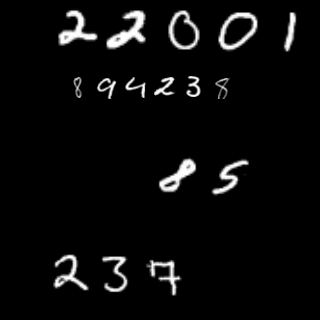 22001
894238
85
237